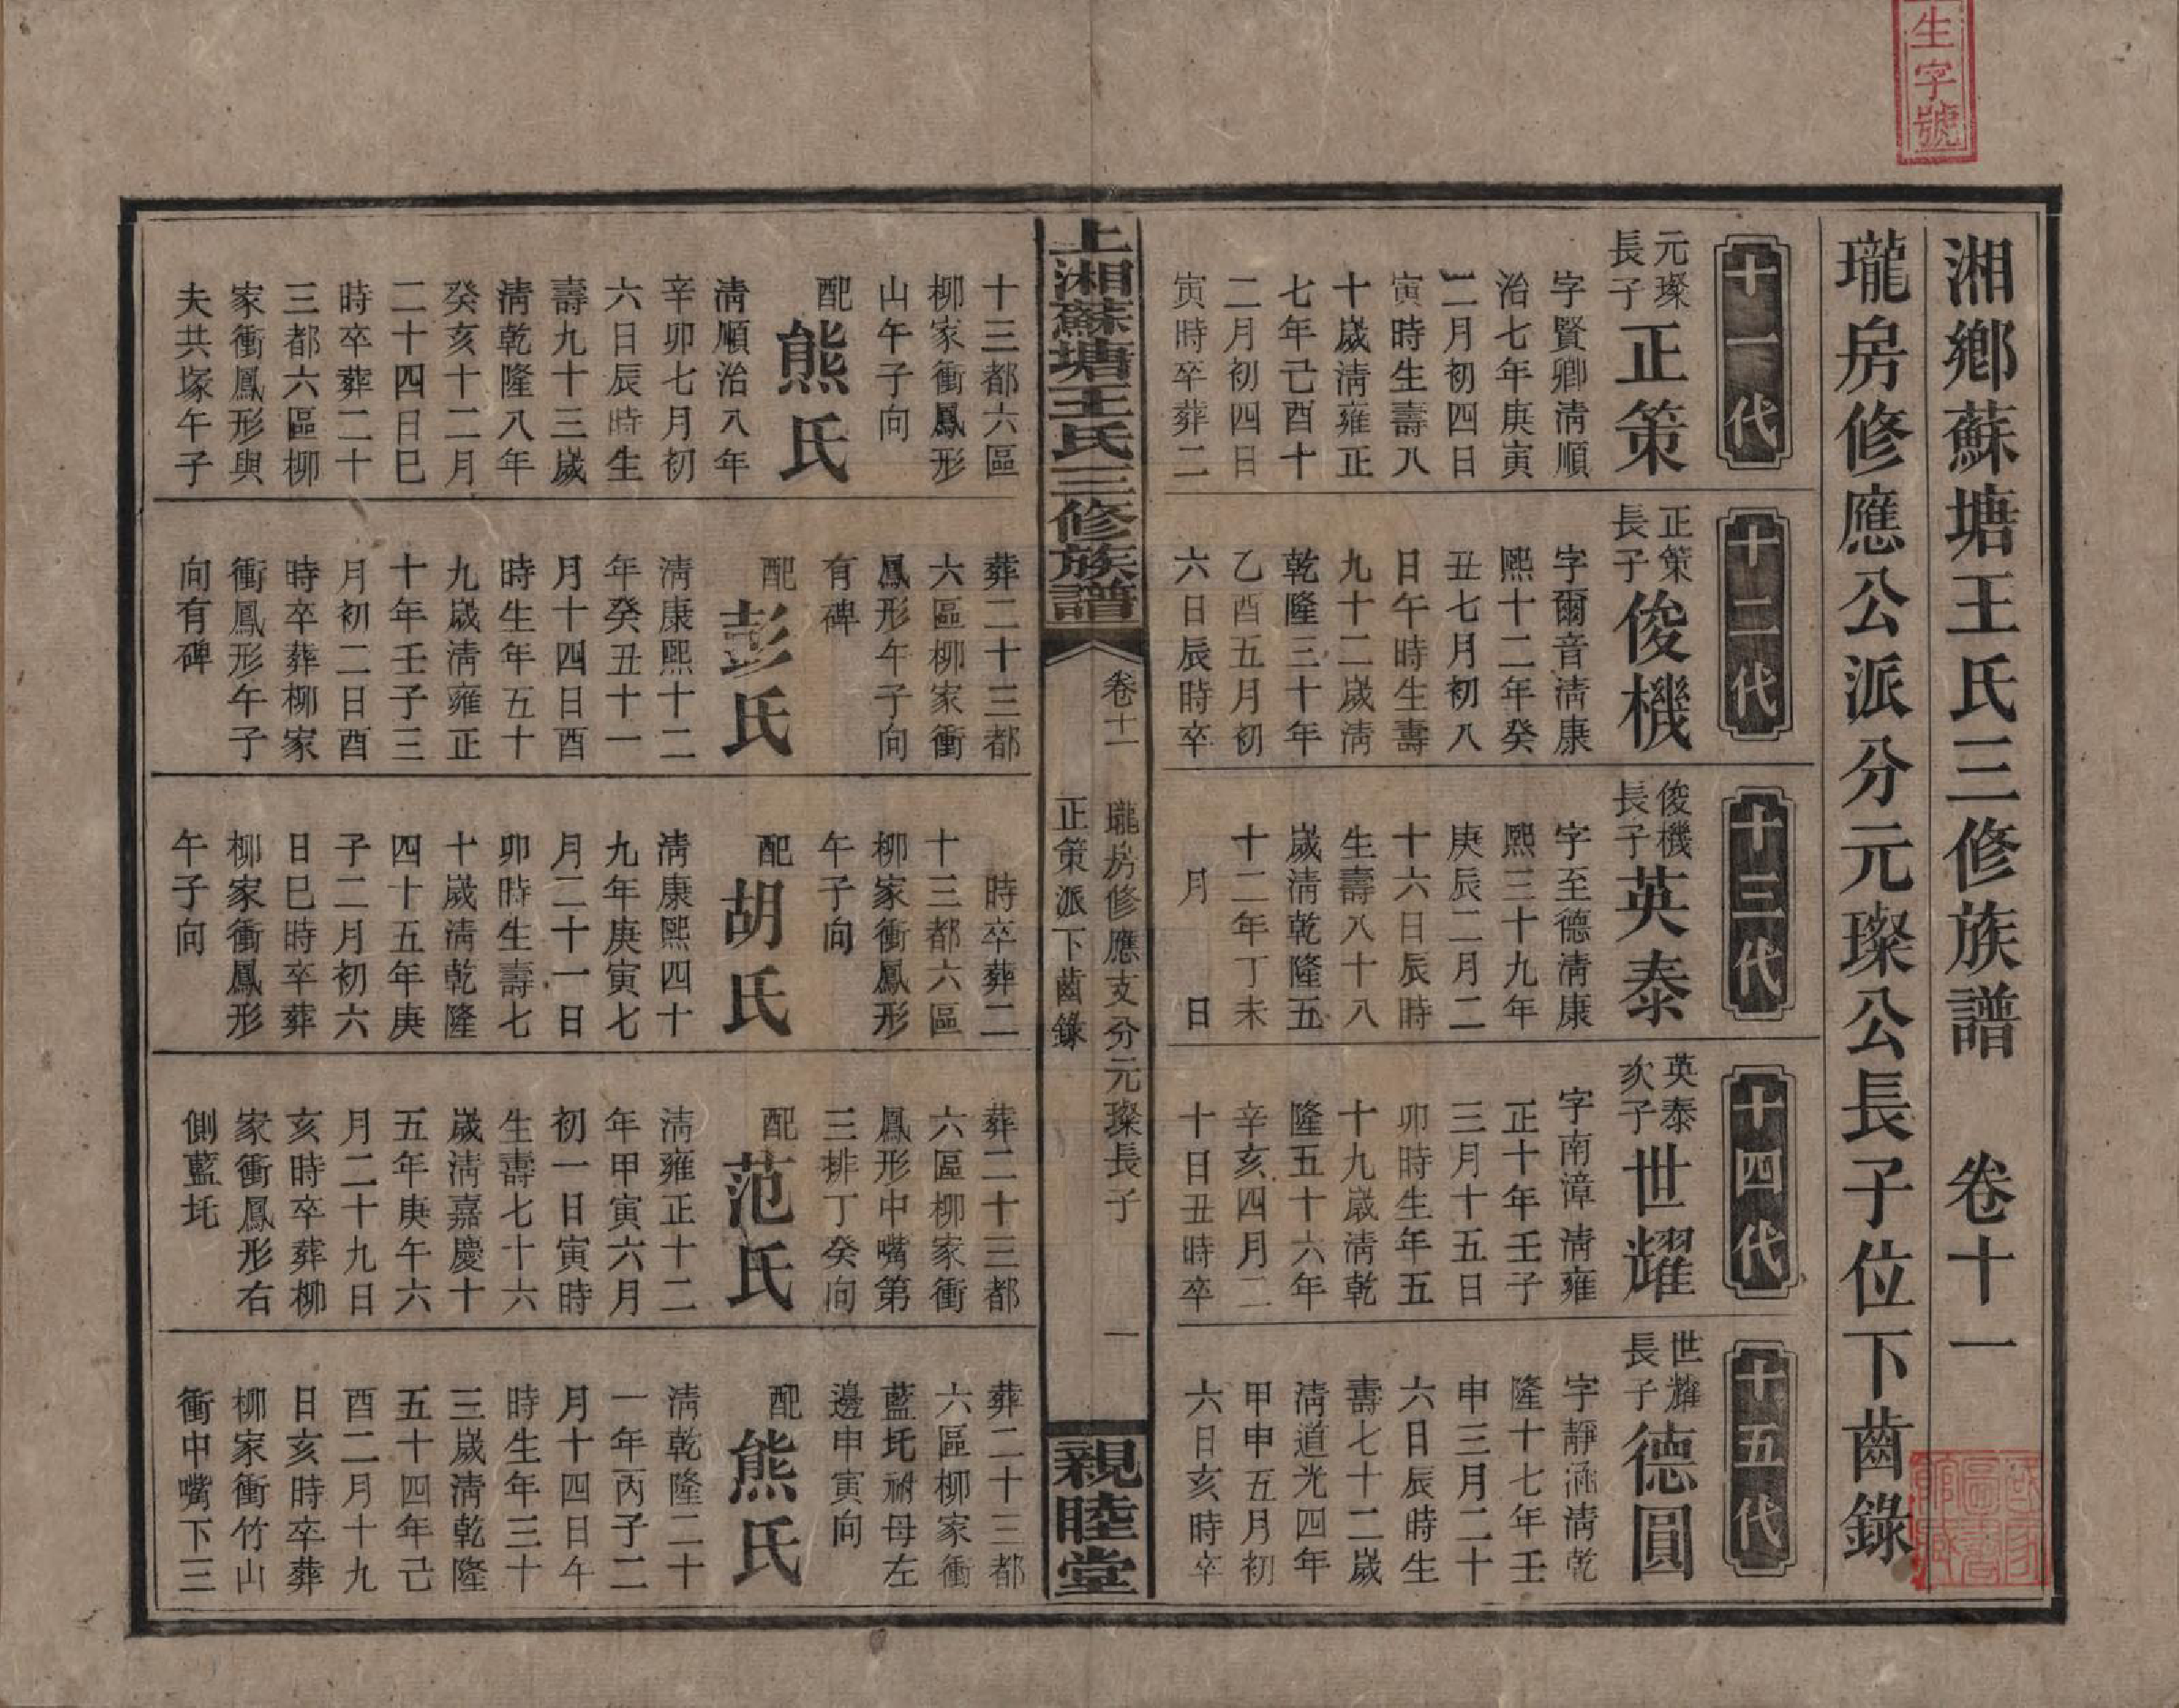 生字號
湘鄉蘇塘王氏三修族譜 卷十一
瓏房修應公派分元璨公長子位下齒錄
十一代
元璨
長子
正策
字賢卿清順
治七年庚寅
二月初四日
寅時生壽八
十歲清雍正
七年己酉十
二月初四日
寅時卒葬二
十二代
正策
長子
俊機
字爾音清康
熙十二年癸
丑七月初八
日午時生壽
九十二歲清
乾隆三十年
乙酉五月初
六日辰時卒
十三代
俊機
長子
英泰
字至德清康
熙三十九年
庚辰二月二
十六日辰時
生壽八十八
歲清乾隆五
十二年丁未
月 日
十四代
英泰
次子
世耀
字南漳清雍
正十年壬子
三月十五日
卯時生年五
十九歲清乾
隆五十六年
辛亥四月二
十日丑時卒
十五代
世耀
長子
德圓
字靜涵清乾
隆十七年壬
申三月二十
六日辰時生
壽七十二歲
清道光四年
甲申五月初
六日亥時卒
上湘蘇塘王氏三修族譜
卷十一 瓏房修應支分元璨長子 一
正策派下齒錄
親睦堂
十三都六區
柳家衝鳳形
山午子向
配
熊氏
清順治八年
辛卯七月初
六日辰時生
壽九十三歲
清乾隆八年
癸亥十二月
二十四日巳
時卒葬二十
三都六區柳
家衝鳳形與
夫共塚午子
葬二十三都
六區柳家衝
鳳形午子向
有碑
配
彭氏
清康熙十二
年癸丑十一
月十四日酉
時生年五十
九歲清雍正
十年壬子三
月初二日酉
時卒葬柳家
衝鳳形午子
向有碑
時卒葬二
十三都六區
柳家衝鳳形
午子向
配
胡氏
清康熙四十
九年庚寅七
月二十一日
卯時生壽七
十歲清乾隆
四十五年庚
子二月初六
日巳時卒葬
柳家衝鳳形
午子向
葬二十三都
六區柳家衝
鳳形中嘴第
三排丁癸向
配
范氏
清雍正十二
年甲寅六月
初一日寅時
生壽七十六
歲清嘉慶十
五年庚午六
月二十九日
亥時卒葬柳
家衝鳳形右
側藍圫
葬二十三都
六區柳家衝
藍圫祔母左
邊申寅向
配
熊氏
清乾隆二十
一年丙子二
月十四日午
時生年三十
三歲清乾隆
五十四年己
酉二月十九
日亥時卒葬
柳家衝竹山
衝中嘴下三